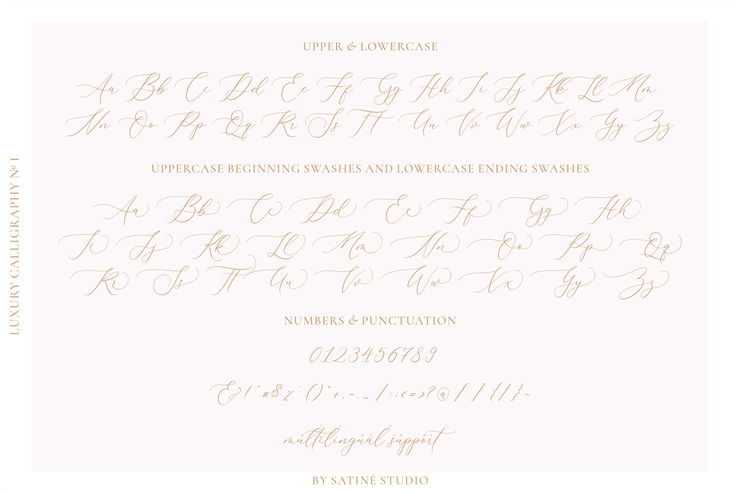 UPPER & LOWERCASE
Aa Bb Cc Dd Ee Ff Gg Hh Ii Jj Kk Ll Mm
Nn Oo Pp Qq Rr Ss Tt Uu Vv Ww Xx Yy Zz
UPPERCASE BEGINNING SWASHES AND LOWERCASE ENDING SWASHES
Aa Bb Cc Dd Ee Ff Gg Hh
Ii Jj Kk Ll Mm Nn Oo Pp Qq
Rr Ss Tt Uu Vv Ww Xx Yy Zz
NUMBERS & PUNCTUATION
0123456789
&!"#$%'()*+,-._/:;<=>?@[/]{|}~
mültilingüäl süppört
BY SATINÉ STUDIO
LUXURY CALLIGRAPHY № 1